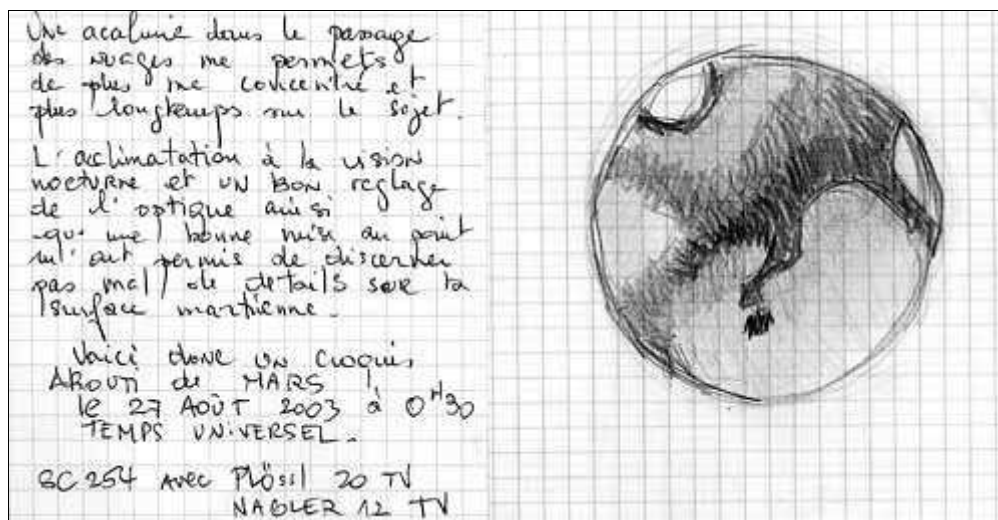 Une acalmie dans le passage
des nuages me permets
de plus me concentré et
plus longtemps sur le sujet.
L'acclimatation à la vision
nocturne et un bon reglage
de l'optique ainsi
qu'une bonne mise au point
m'ont permis de discerner
pas mal de details sur la
surface martienne.
Voici donc un croquis
ABOUTI de MARS !
le 27 AOÛT 2003 à 0H30
TEMPS UNIVERSEL.
SC 254 AVEC PLÖSSl 20 TV
NAGLER 12 TV